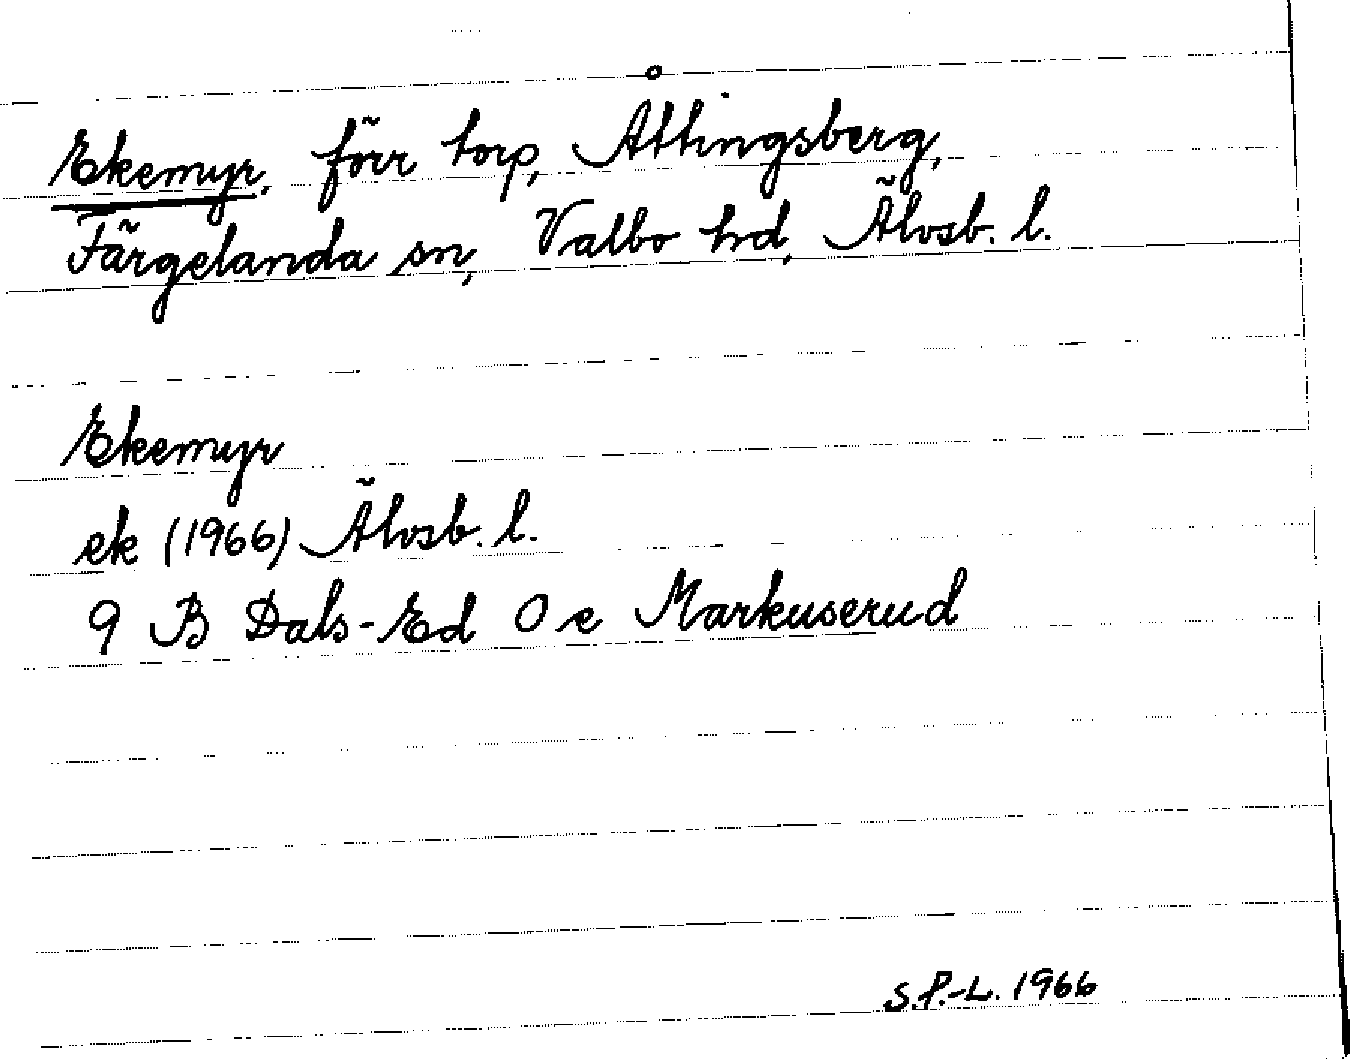 Ekemyr, förr torp, Åttingsberg,
Färgelanda sn, Valbo hd, Älvsb. l.
Ekemyr
ek (1966) Älvsb. l.
9 B Dals-Ed O e Markuserud
S.P.-L. 1966